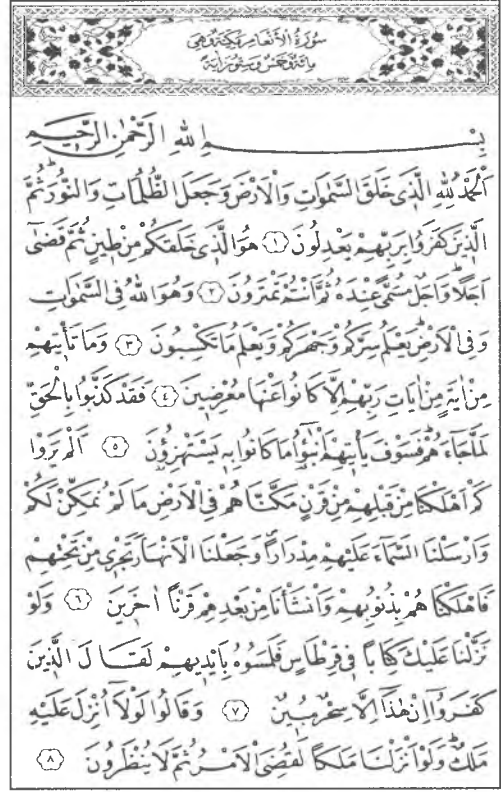 سُورَةُ الْاَنْعَامِ مَكِّيَّةٌ وَهِىَ
مِائَةٌ وَخَمْسٌ وَسِتُّونَ اٰيَةً
بِسْــــمِ اللّٰهِ الرَّحْمٰنِ الرَّحٖيمِ
اَلْحَمْدُ لِلّٰهِ الَّذٖى خَلَقَ السَّمٰوَاتِ وَالْاَرْضَ وَجَعَلَ الظُّلُمَاتِ وَالنُّورَؕ ثُمَّ
الَّذٖينَ كَفَرُوا بِرَبِّهِمْ يَعْدِلُونَ ﴿١﴾ هُوَ الَّذٖى خَلَقَكُمْ مِنْ طٖينٍ ثُمَّ قَضٰٓى
اَجَلًاؕ وَاَجَلٌ مُسَمًّى عِنْدَهُ ثُمَّ اَنْتُمْ تَمْتَرُونَ ﴿٢﴾ وَهُوَ اللّٰهُ فِى السَّمٰوَاتِ
وَفِى الْاَرْضِؕ يَعْلَمُ سِرَّكُمْ وَجَهْرَكُمْ وَيَعْلَمُ مَا تَكْسِبُونَ ﴿٣﴾ وَمَا تَاْتٖيهِمْ
مِنْ اٰيَةٍ مِنْ اٰيَاتِ رَبِّهِمْ اِلَّا كَانُوا عَنْهَا مُعْرِضٖينَ ﴿٤﴾ فَقَدْ كَذَّبُوا بِالْحَقِّ
لَمَّا جَٓاءَهُمْؕ فَسَوْفَ يَاْتٖيهِمْ اَنْبٰٓؤُا مَا كَانُوا بِهٖ يَسْتَهْزِؤُنَ ﴿٥﴾ اَلَمْ يَرَوْا
كَمْ اَهْلَكْنَا مِنْ قَبْلِهِمْ مِنْ قَرْنٍ مَكَّنَّاهُمْ فِى الْاَرْضِ مَا لَمْ نُمَكِّنْ لَكُمْ
وَاَرْسَلْنَا السَّمَٓاءَ عَلَيْهِمْ مِدْرَارًا وَجَعَلْنَا الْاَنْهَارَ تَجْرٖى مِنْ تَحْتِهِمْ
فَاَهْلَكْنَاهُمْ بِذُنُوبِهِمْ وَاَنْشَاْنَا مِنْ بَعْدِهِمْ قَرْنًا اٰخَرٖينَ ﴿٦﴾ وَلَوْ
نَزَّلْنَا عَلَيْكَ كِتَابًا فٖى قِرْطَاسٍ فَلَمَسُوهُ بِاَيْدٖيهِمْ لَقَالَ الَّذٖينَ
كَفَرُٓوا اِنْ هٰذَٓا اِلَّا سِحْرٌ مُبٖينٌ ﴿٧﴾ وَقَالُوا لَوْلَٓا اُنْزِلَ عَلَيْهِ
مَلَكٌؕ وَلَوْ اَنْزَلْنَا مَلَكًا لَقُضِىَ الْاَمْرُ ثُمَّ لَا يُنْظَرُونَ ﴿٨﴾